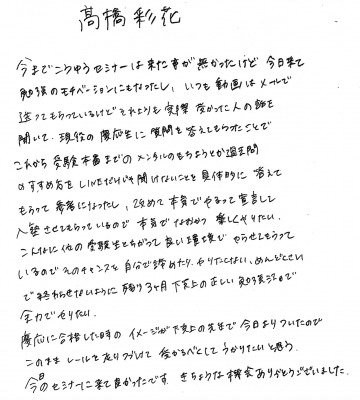 高橋彩花
今までこうゆうセミナーは来た事が無かったけど 今日来て
勉強のモチベーションにもなったし、いつも動画はメールで
送ってもらっているけどそれよりも実際 受かった人の話を
聞いて、現役の慶応生に質問を答えてもらったことで
これから受験本番までのメンタルのもちようとか過去問
のすすめ方を LINEだけじゃ聞けないことを具体的に 答えて
もらって 参考になったし、改めて本気でやるって宣言して
入塾させてもらっているので 本気でなおかつ 楽しくやりたい。
こんなに他の受験生とちがって良い環境で やらせてもらって
いるので そのチャンスを 自分で諦めたり、やりたくない、めんどくさい
で終わらせないように 残り3ヶ月 下克上の正しい勉強法で
全力でやりたい。
慶応に合格した時の イメージが下克上の先生で 今日よりついたので
このまま レールを走りつづけて 受かるべくして うかりたいと思う。
今日のセミナーに来て良かったです。きちょうな機会ありがとうございました。